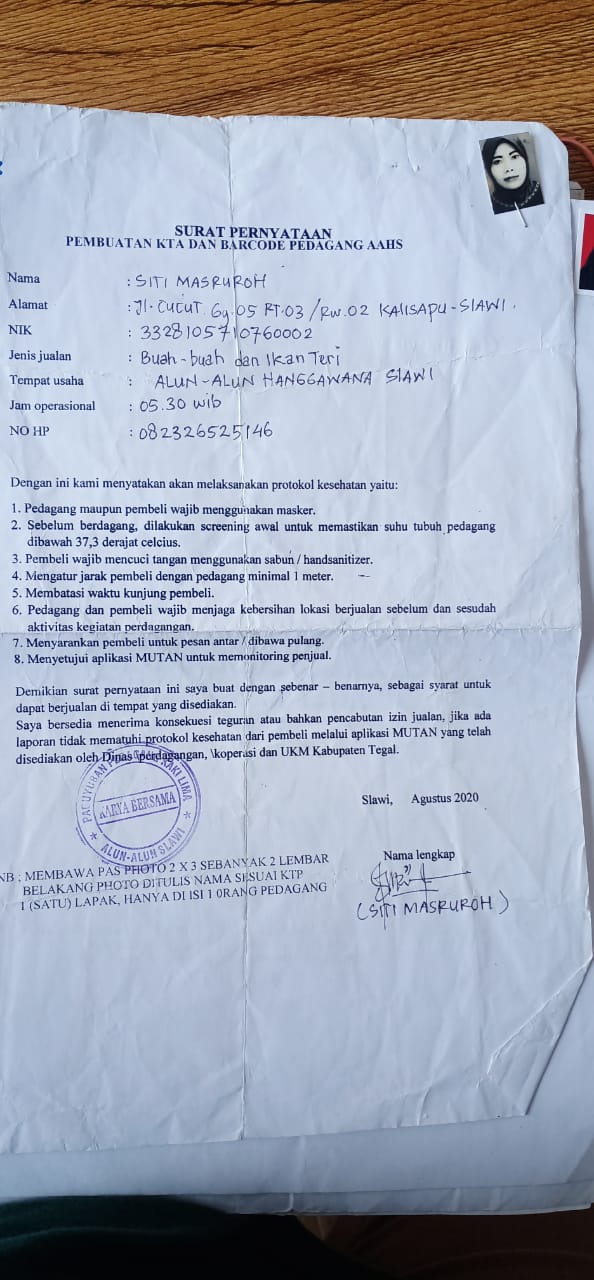 SURAT PERNYATAAN
PEMBUATAN KTA DAN BARCODE PEDAGANG AAHS
Nama : SITI MASRUROH
Alamat : Jl. CUCUT. Gg. 05 RT. 03 / RW. 02 KALISAPU - SLAWI.
NIK : 3328105710760002
Jenis jualan : Buah - buah dan Ikan Teri
Tempat usaha : ALUN - ALUN HANGGAWANA SLAWI
Jam operasional : 05.30 wib
NO HP : 082326525146
Dengan ini kami menyatakan akan melaksanakan protokol kesehatan yaitu:
1. Pedagang maupun pembeli wajib menggunakan masker.
2. Sebelum berdagang, dilakukan screening awal untuk memastikan suhu tubuh pedagang
dibawah 37,3 derajat celcius.
3. Pembeli wajib mencuci tangan menggunakan sabun / handsanitizer.
4. Mengatur jarak pembeli dengan pedagang minimal 1 meter.
5. Membatasi waktu kunjung pembeli.
6. Pedagang dan pembeli wajib menjaga kebersihan lokasi berjualan sebelum dan sesudah
aktivitas kegiatan perdagangan.
7. Menyarankan pembeli untuk pesan antar / dibawa pulang.
8. Menyetujui aplikasi MUTAN untuk memonitoring penjual.
Demikian surat pernyataan ini saya buat dengan sebenar – benarnya, sebagai syarat untuk
dapat berjualan di tempat yang disediakan.
Saya bersedia menerima konsekuesi teguran atau bahkan pencabutan izin jualan, jika ada
laporan tidak mematuhi protokol kesehatan dari pembeli melalui aplikasi MUTAN yang telah
disediakan oleh Dinas \perdagangan, \koperasi dan UKM Kabupaten Tegal.
PAGUYUBAN PEDAGANG KAKI LIMA
KARYA BERSAMA
ALUN-ALUN SLAWI
Slawi, Agustus 2020
Nama lengkap
(SITI MASRUROH)
NB : MEMBAWA PAS PHOTO 2 X 3 SEBANYAK 2 LEMBAR
BELAKANG PHOTO DITULIS NAMA SESUAI KTP
1 (SATU) LAPAK, HANYA DI ISI 1 0RANG PEDAGANG